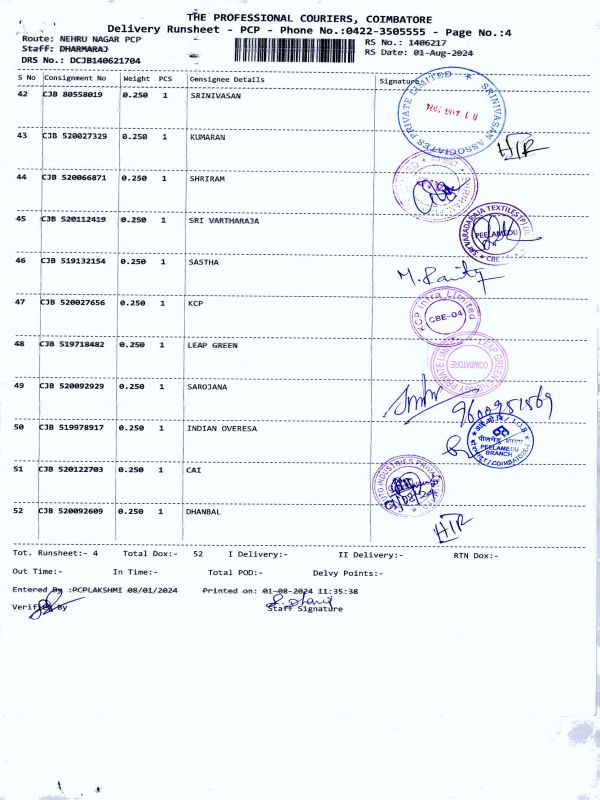 THE PROFESSIONAL COURIERS, COIMBATORE
Delivery Runsheet - PCP - Phone No.:0422-3505555 - Page No.:4
Route: NEHRU NAGAR PCP
RS No.: 1406217
Staff: DHARMARAJ
RS Date: 01-Aug-2024
DRS No.: DCJB140621704
S No Consignment No Weight PCS Consignee Details Signature
42 CJB 80558019 0.250 1 SRINIVASAN
SRINIVASAN ASSOCIATES PRIVATE LIMITED
43 CJB 520027329 0.250 1 KUMARAN
44 CJB 520066871 0.250 1 SHRIRAM
45 CJB 520112419 0.250 1 SRI VARTHARAJA
PEELAMEDU
46 CJB 519132154 0.250 1 SASTHA
47 CJB 520027656 0.250 1 KCP
KCP Infra Limited
CBE-04
48 CJB 519718482 0.250 1 LEAP GREEN
COIMBATORE
49 CJB 520092929 0.250 1 SAROJANA
9600951569
50 CJB 519978917 0.250 1 INDIAN OVERESA
PEELAMEDU
BRANCH
51 CJB 520122703 0.250 1 CAI
52 CJB 520092609 0.250 1 DHANBAL
Tot. Runsheet:- 4 Total Dox:- 52 I Delivery:- II Delivery:- RTN Dox:-
Out Time:- In Time:- Total POD:- Delvy Points:-
Entered By :PCPLAKSHMI 08/01/2024 Printed on: 01-08-2024 11:35:38
Verified By Staff Signature